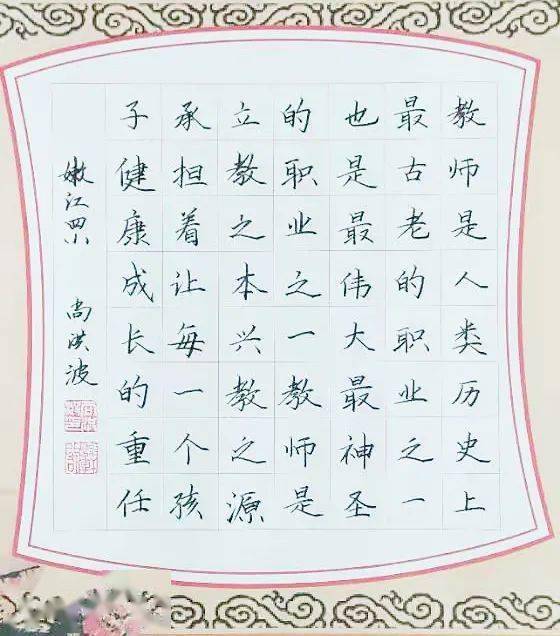 教师是人类历史上
最古老的职业之一
也是最伟大最神圣
的职业之一教师是
立教之本兴教之源
承担着让每一个孩
子健康成长的重任
嫩江四小 尚洪波